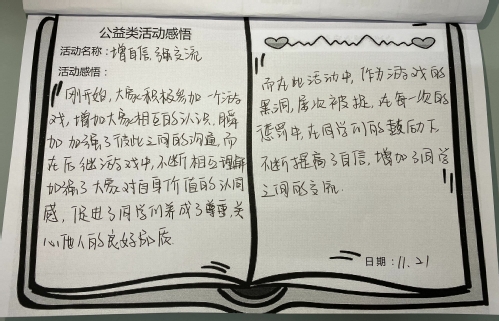 公益类活动感悟
活动名称：增自信 强交流
活动感悟：
刚开始，大家积极参加一个游
戏，增加大家相互的认识，瞬
加加强了彼此之间的沟通，而
在后继游戏中，不断相互理解
加强了大家对自身价值的认同
感，促进了同学们养成了尊重，关
心他人的良好品质
而在此活动中，作为游戏的
黑洞，屡次被捉，在每一次的
惩罚中，在同学们的鼓励下
不断提高了自信，增加了同学
之间的交流.
日期：11.21